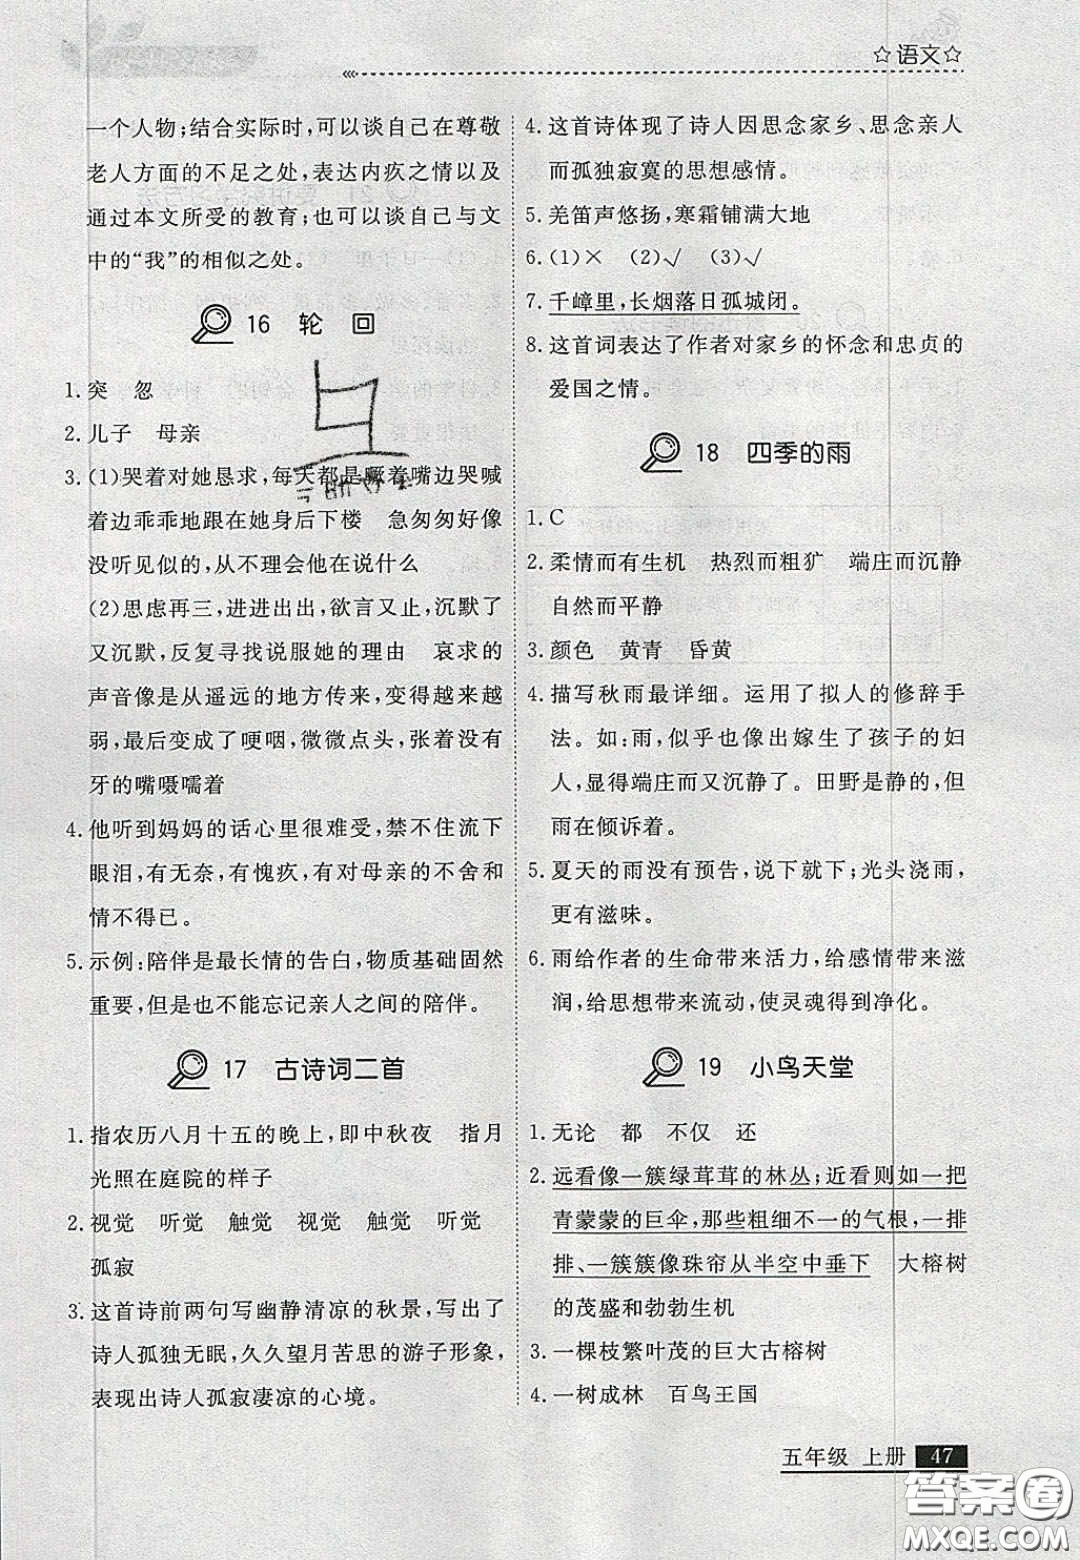 ☆语文☆
一个人物;结合实际时,可以谈自己在尊敬
老人方面的不足之处,表达内疚之情以及
通过本文所受的教育;也可以谈自己与文
中的“我”的相似之处。
16 轮 回
1. 突 忽
2. 儿子 母亲
3. (1)哭着对她恳求,每天都是噘着嘴边哭喊
着边乖乖地跟在她身后下楼 急匆匆好像
没听见似的,从不理会他在说什么
(2)思虑再三,进进出出,欲言又止,沉默了
又沉默,反复寻找说服她的理由 哀求的
声音像是从遥远的地方传来,变得越来越
弱,最后变成了哽咽,微微点头,张着没有
牙的嘴嗫嚅着
4. 他听到妈妈的话心里很难受,禁不住流下
眼泪,有无奈,有愧疚,有对母亲的不舍和
情不得已。
5. 示例:陪伴是最长情的告白,物质基础固然
重要,但也不能忘记亲人之间的陪伴。
17 古诗词二首
1. 指农历八月十五的晚上,即中秋夜 指月
光照在庭院的样子
2. 视觉 听觉 触觉 视觉 触觉 听觉
孤寂
3. 这首诗前两句写幽静清凉的秋景,写出了
诗人孤独无眠,久久望月苦思的游子形象,
表现出诗人孤寂凄凉的心境。
4. 这首诗体现了诗人因思念家乡、思念亲人
而孤独寂寞的思想感情。
5. 羌笛声悠扬,寒霜铺满大地
6. (1)× (2)√ (3)√
7. 千嶂里,长烟落日孤城闭。
8. 这首词表达了作者对家乡的怀念和忠贞的
爱国之情。
18 四季的雨
1. C
2. 柔情而有生机 热烈而粗犷 端庄而沉静
自然而平静
3. 颜色 黄青 昏黄
4. 描写秋雨最详细。运用了拟人的修辞手
法。如:雨,似乎也像出嫁生了孩子的妇
人,显得端庄而又沉静了。田野是静的,但
雨在倾诉着。
5. 夏天的雨没有预告,说下就下;光头浇雨,
更有滋味。
6. 雨给作者的生命带来活力,给感情带来滋
润,给思想带来流动,使灵魂得到净化。
19 小鸟天堂
1. 无论 都 不仅 还
2. 远看像一簇绿茸茸的林丛;近看则如一把
青蒙蒙的巨伞,那些粗细不一的气根,一排
排、一簇簇像珠帘从半空中垂下 大榕树
的茂盛和勃勃生机
3. 一棵枝繁叶茂的巨大古榕树
4. 一树成林 百鸟王国
五年级 上册 47
答案圈
MXQE.COM